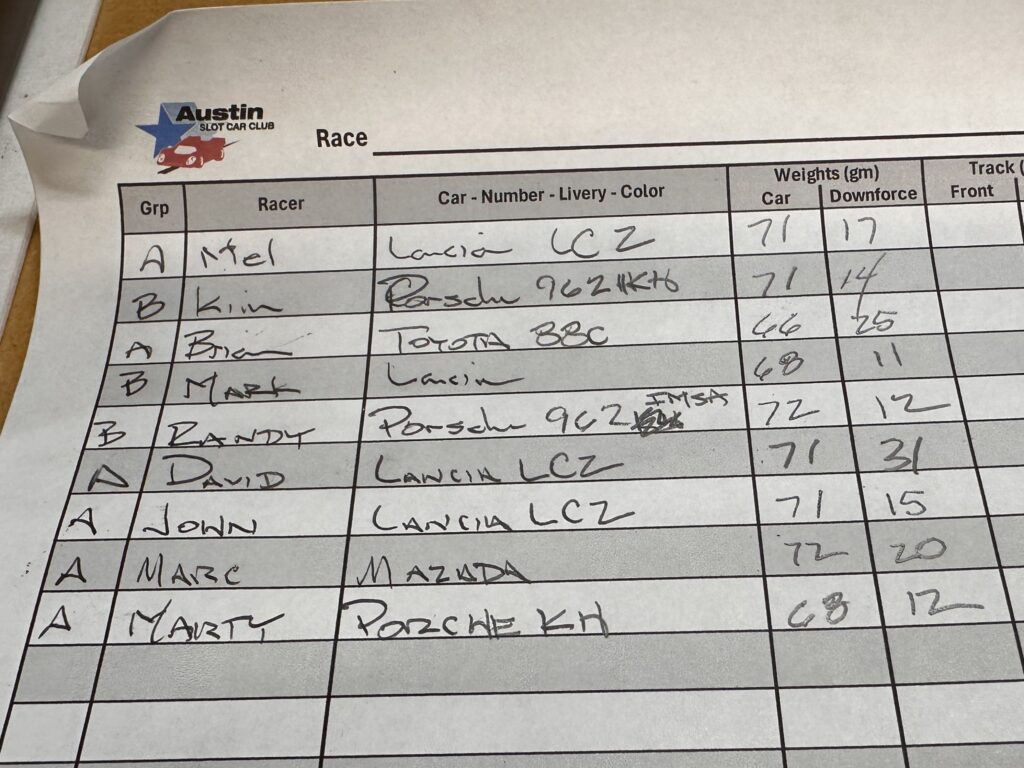 Austin
SLOT CAR CLUB
Race
Grp Racer Car - Number - Livery - Color Weights (gm) Track (
Car Downforce Front
A Mel Lancia LC2 71 17
B Kim Porsche 962 KH 71 14
A Brian TOYOTA 88C 66 25
B MARK Lancia 68 11
B RANDY Porsche 962 IMSA 72 12
A DAVID LANCIA LC2 71 31
A JOHN LANCIA LC2 71 15
A MARC MAZADA 72 20
A MARTY PORZCHE KH 68 12